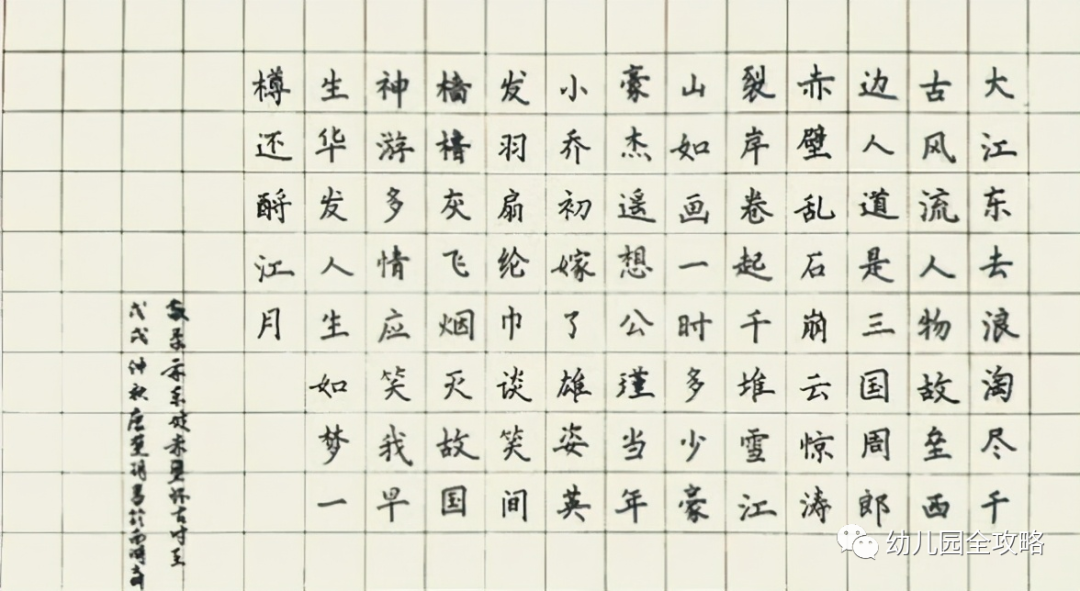 大江东去浪淘尽千
古风流人物故垒西
边人道是三国周郎
赤壁乱石崩云惊涛
裂岸卷起千堆雪江
山如画一时多少豪
豪杰遥想公瑾当年
小乔初嫁了雄姿英
发羽扇纶巾谈笑间
樯橹灰飞烟灭故国
神游多情应笑我早
生华发人生如梦一
樽还酹江月
怀古
戊戌仲秋
幼儿园全攻略